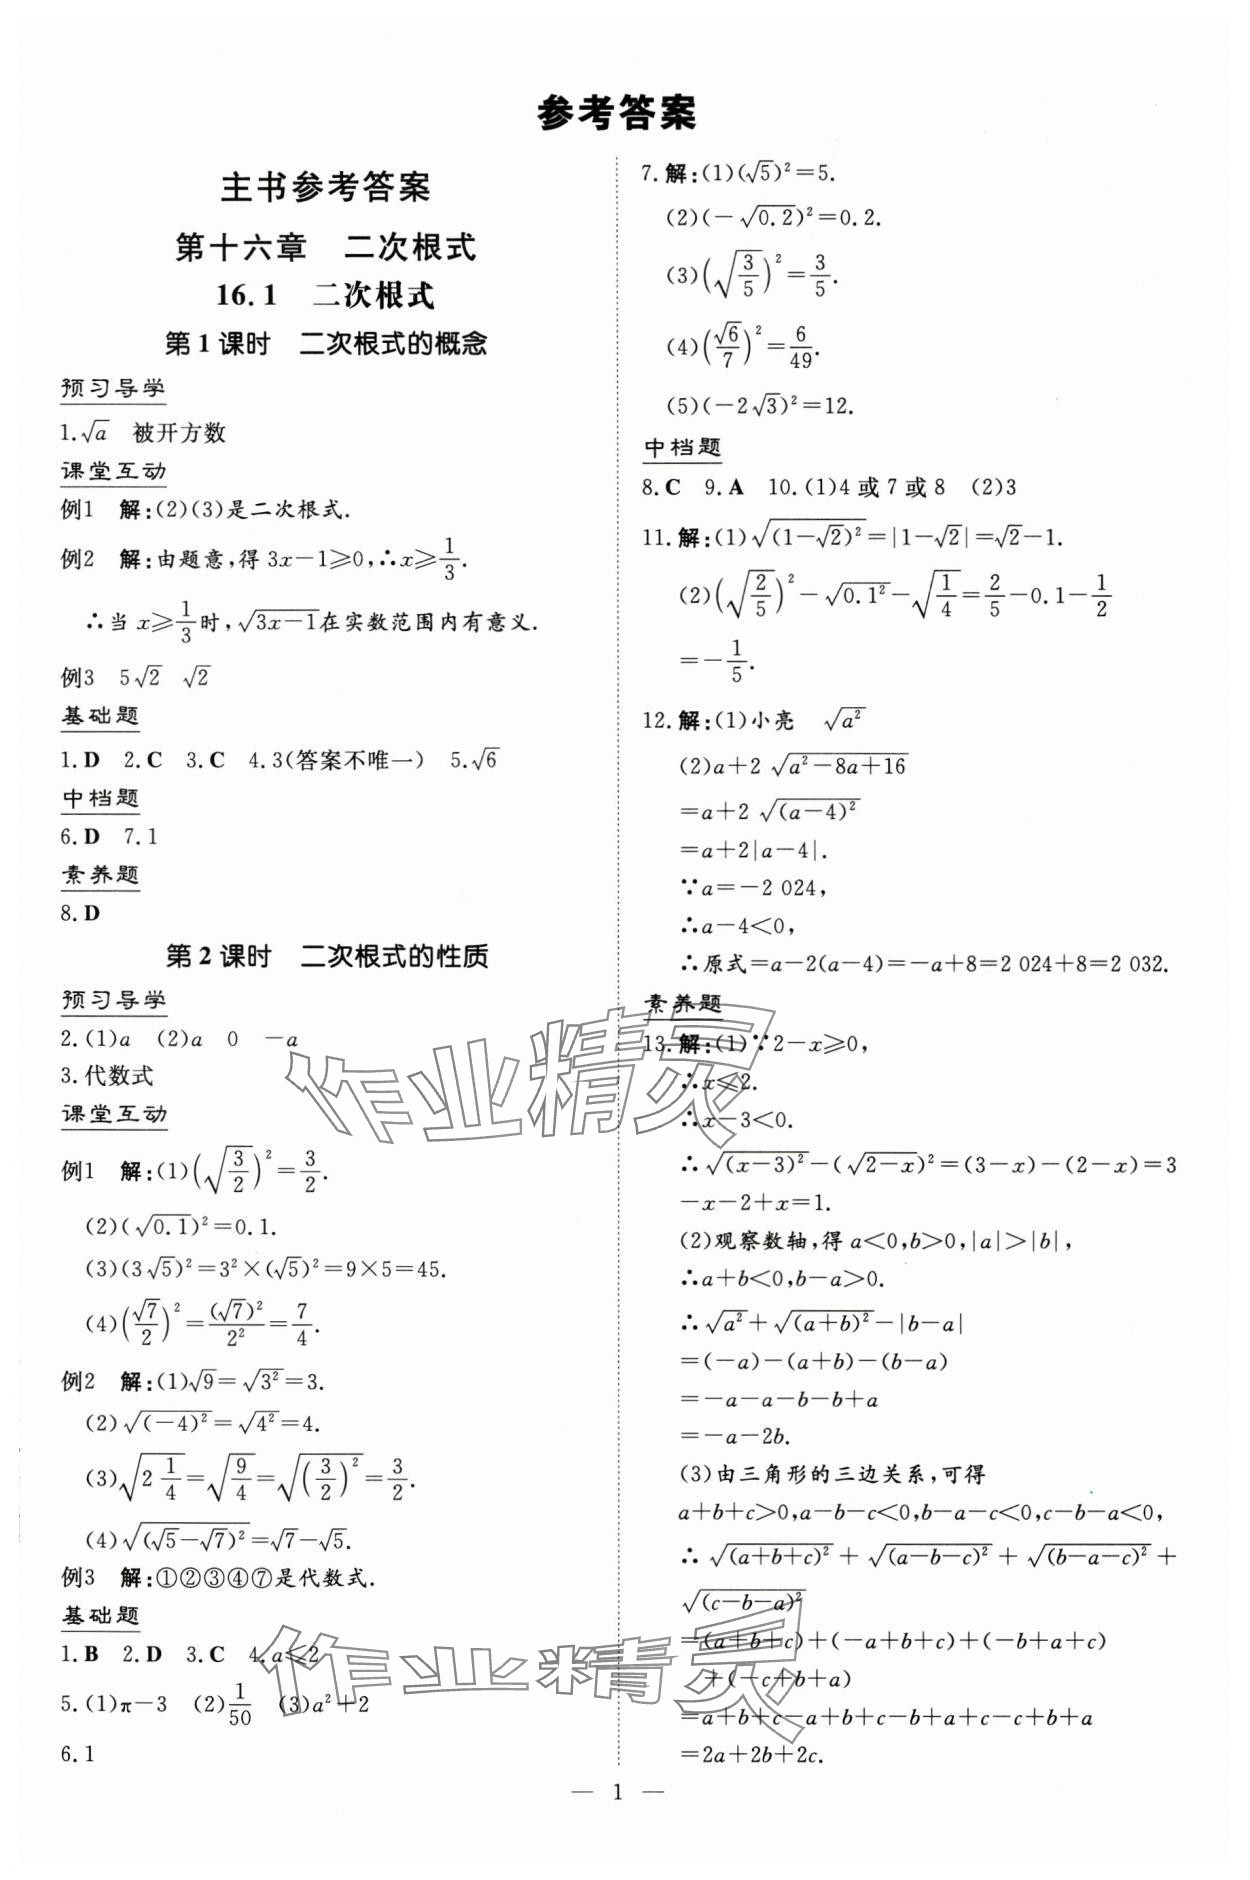 参考答案
主书参考答案
第十六章　二次根式
16.1　二次根式
第1课时　二次根式的概念
预习导学
1.√a　被开方数
课堂互动
例1　解:(2)(3)是二次根式.
例2　解:由题意,得 3x−1⩾0,∴x⩾1/3.
∴当 x⩾1/3时,√(3x−1)在实数范围内有意义.
例3　5√2　√2
基础题
1.D　2.C　3.C　4.3(答案不唯一)　5.√6
中档题
6.D　7.1
素养题
8.D
第2课时　二次根式的性质
预习导学
2.(1)a　(2)a　0　−a
3.代数式
课堂互动
例1　解:(1)(√(3/2))²=3/2.
(2)(√0.1)²=0.1.
(3)(3√5)²=3²×(√5)²=9×5=45.
(4)(√7/2)²=(√7)²/2²=7/4.
例2　解:(1)√9=√(3²)=3.
(2)√((−4)²)=√(4²)=4.
(3)√(2 1/4)=√(9/4)=√((3/2)²)=3/2.
(4)√((√5−√7)²)=√7−√5.
例3　解:①②③④⑦是代数式.
基础题
1.B　2.D　3.C　4.a⩽2
5.(1)π−3　(2)1/50　(3)a²+2
6.1
7.解:(1)(√5)²=5.
(2)(−√0.2)²=0.2.
(3)(√(3/5))²=3/5.
(4)(√6/7)²=6/49.
(5)(−2√3)²=12.
中档题
8.C　9.A　10.(1)4 或 7 或 8　(2)3
11.解:(1)√((1−√2)²)=|1−√2|=√2−1.
(2)(√(2/5))²−√(0.1²)−√(1/4)=2/5−0.1−1/2
=−1/5.
12.解:(1)小亮　√(a²)
(2)a+2√(a²−8a+16)
=a+2√((a−4)²)
=a+2|a−4|.
∵a=−2 024,
∴a−4<0,
∴原式=a−2(a−4)=−a+8=2 024+8=2 032.
素养题
13.解:(1)∵2−x⩾0,
∴x⩽2.
∴x−3<0.
∴√((x−3)²)−(√(2−x))²=(3−x)−(2−x)=3
−x−2+x=1.
(2)观察数轴,得 a<0,b>0,|a|>|b|,
∴a+b<0,b−a>0.
∴√(a²)+√((a+b)²)−|b−a|
=(−a)−(a+b)−(b−a)
=−a−a−b−b+a
=−a−2b.
(3)由三角形的三边关系,可得
a+b+c>0,a−b−c<0,b−a−c<0,c−b−a<0,
∴√((a+b+c)²)+√((a−b−c)²)+√((b−a−c)²)+
√((c−b−a)²)
=(a+b+c)+(−a+b+c)+(−b+a+c)
+(−c+b+a)
=a+b+c−a+b+c−b+a+c−c+b+a
=2a+2b+2c.
— 1 —
作业精灵
作业精灵